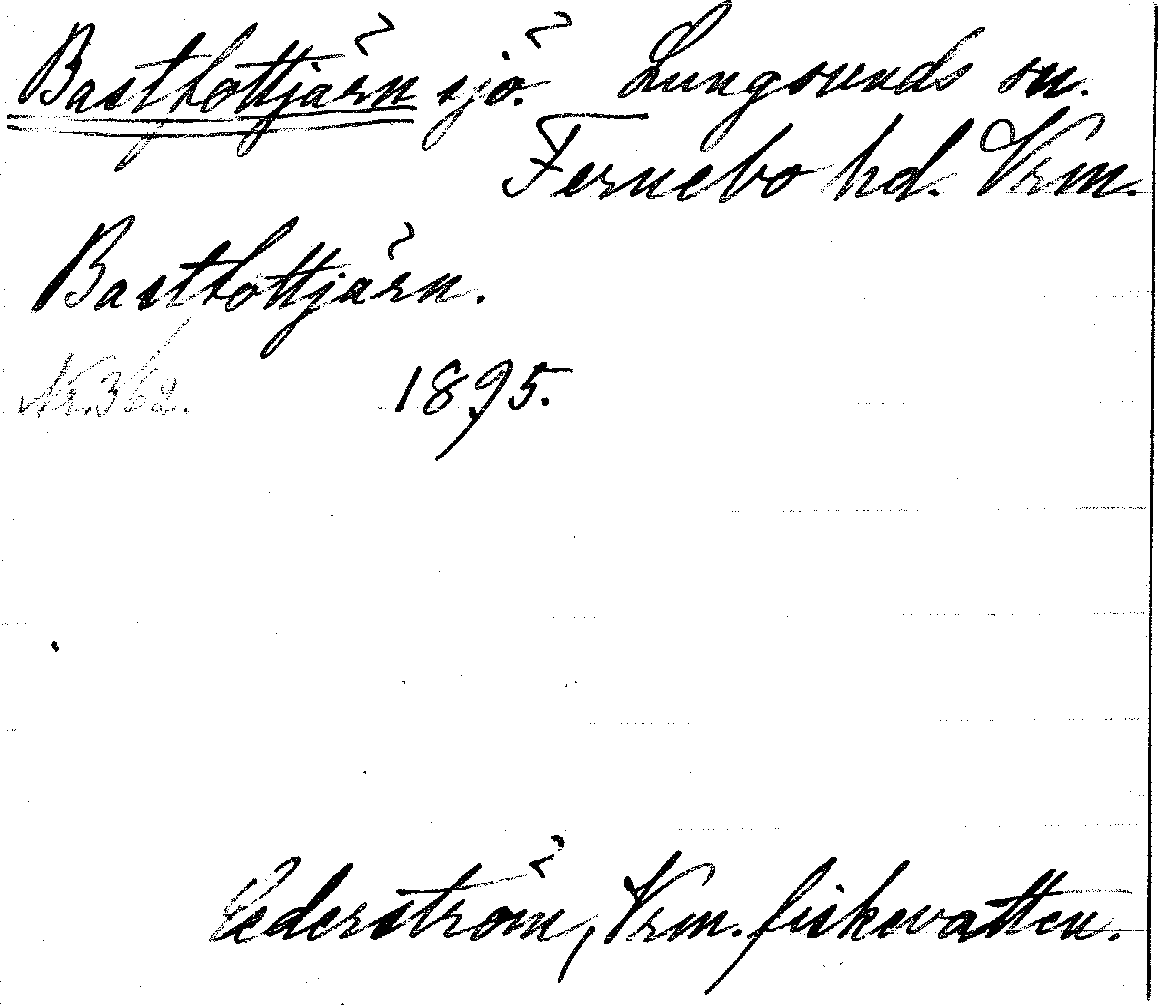 Bastkottjärn sjö. Lungsunds sn.
Fernebo hd. Vrm.
Bastkottjärn.
Nr. 362. 1895.
Cederström, Vrm. fiskevatten.